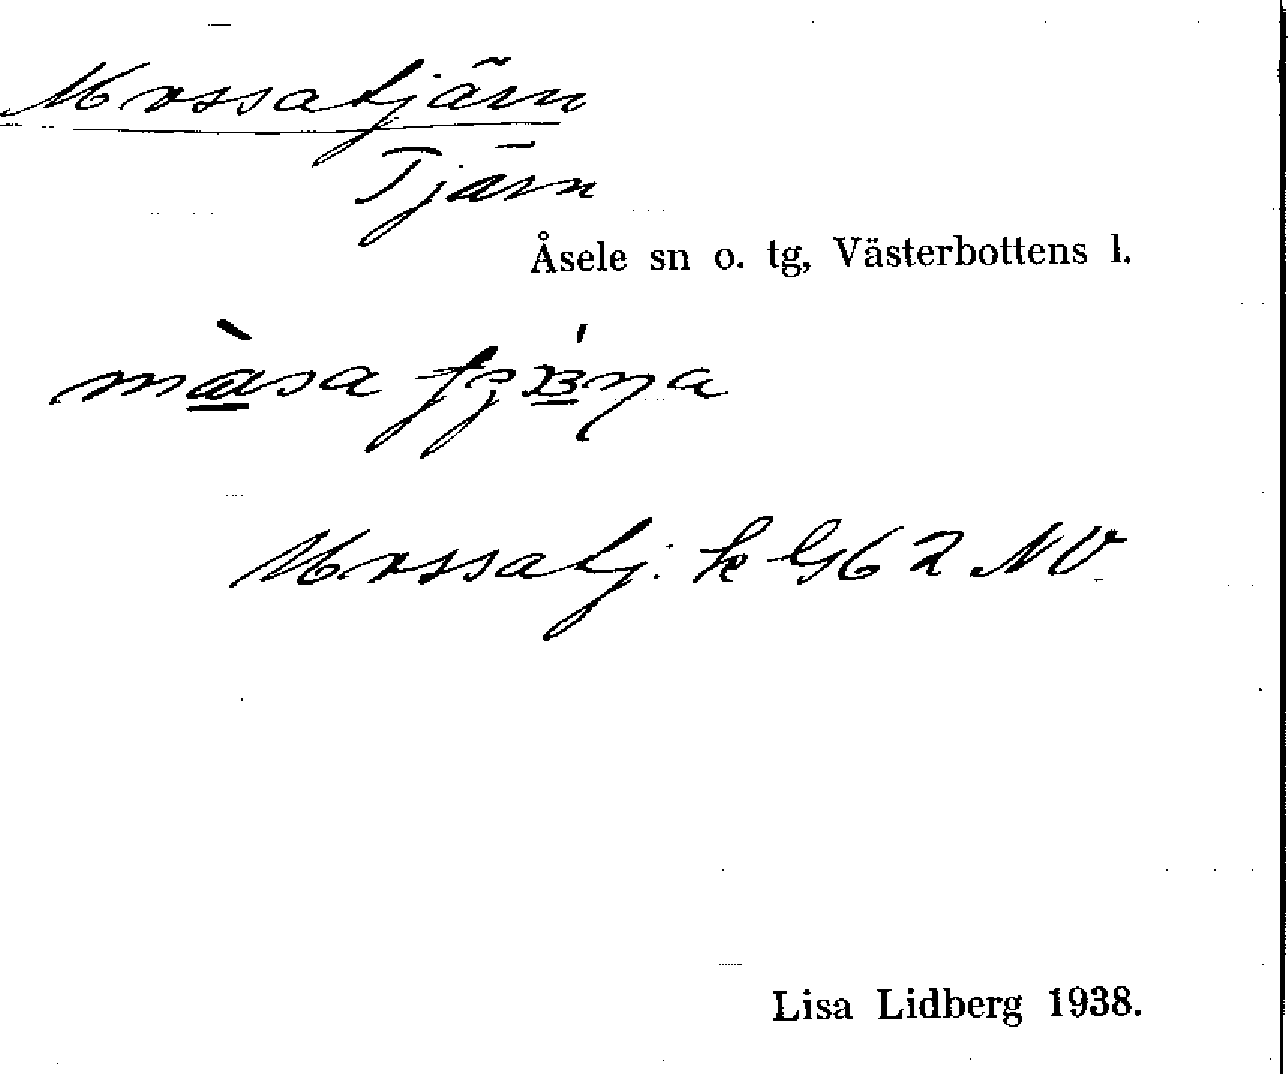 Mossatjärn
Tjärn
Åsele sn o. tg, Västerbottens l.
Mossatj. k G62 NV
Lisa Lidberg 1938.